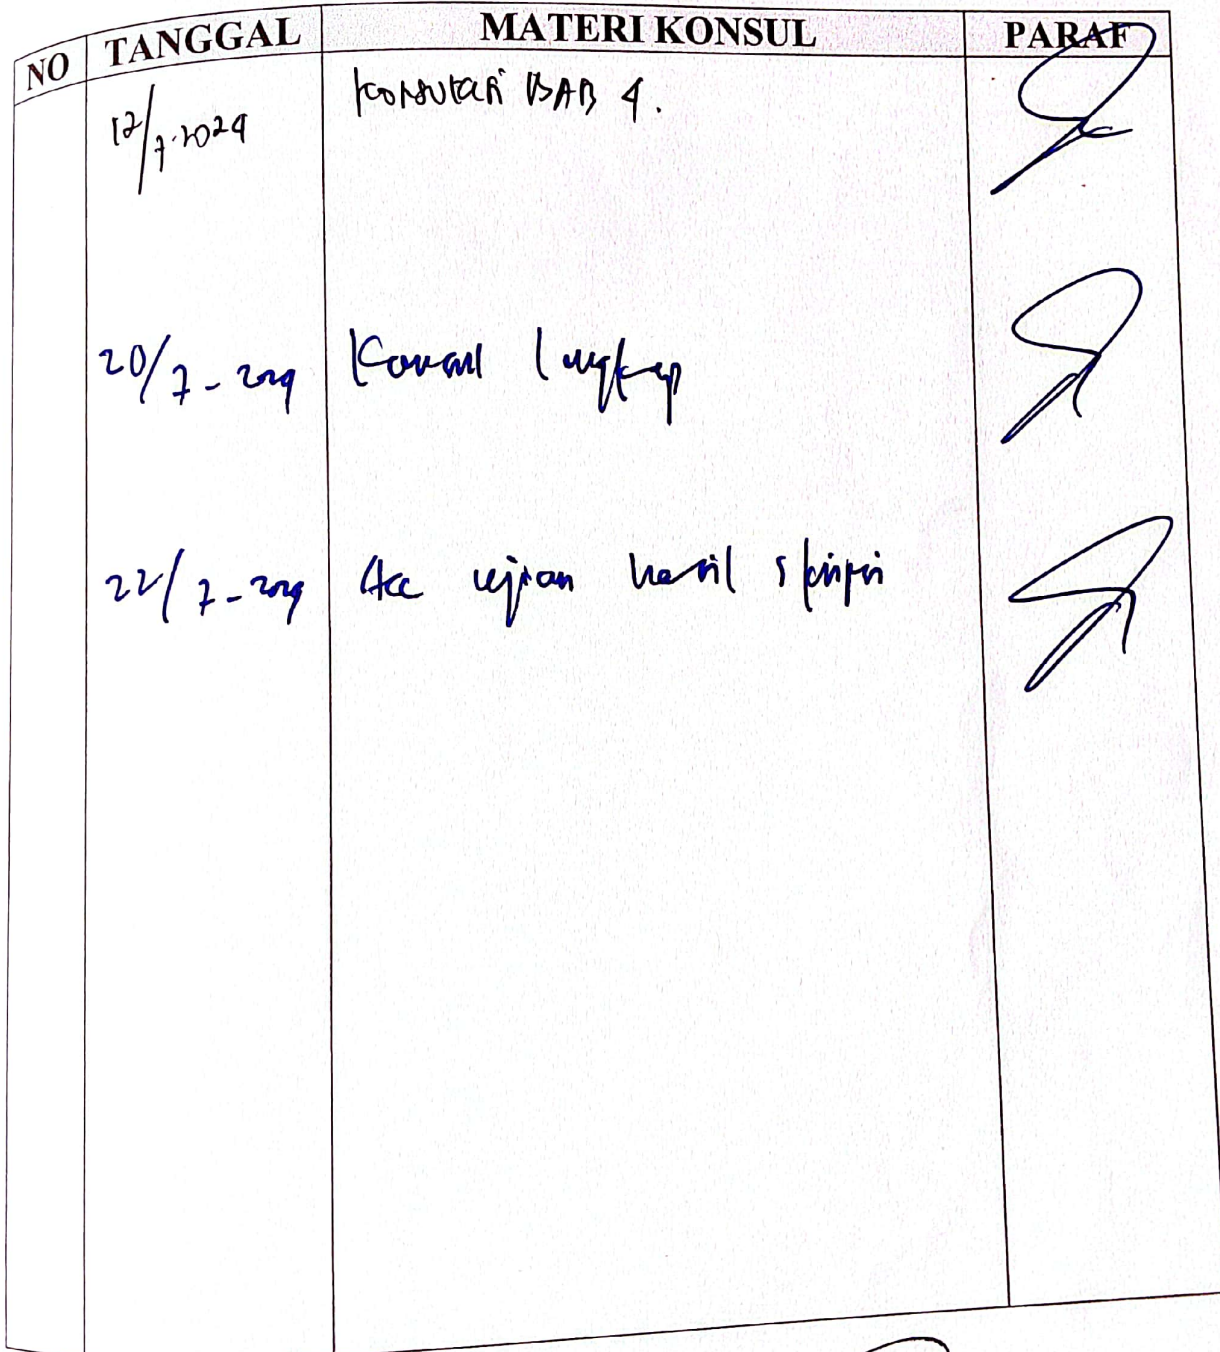 NO TANGGAL MATERI KONSUL PARAF
12/7-2024 Konsultasi BAB 4.
20/7-2024 Konsul lengkap
22/7-2024 Acc ujian hasil skripsi